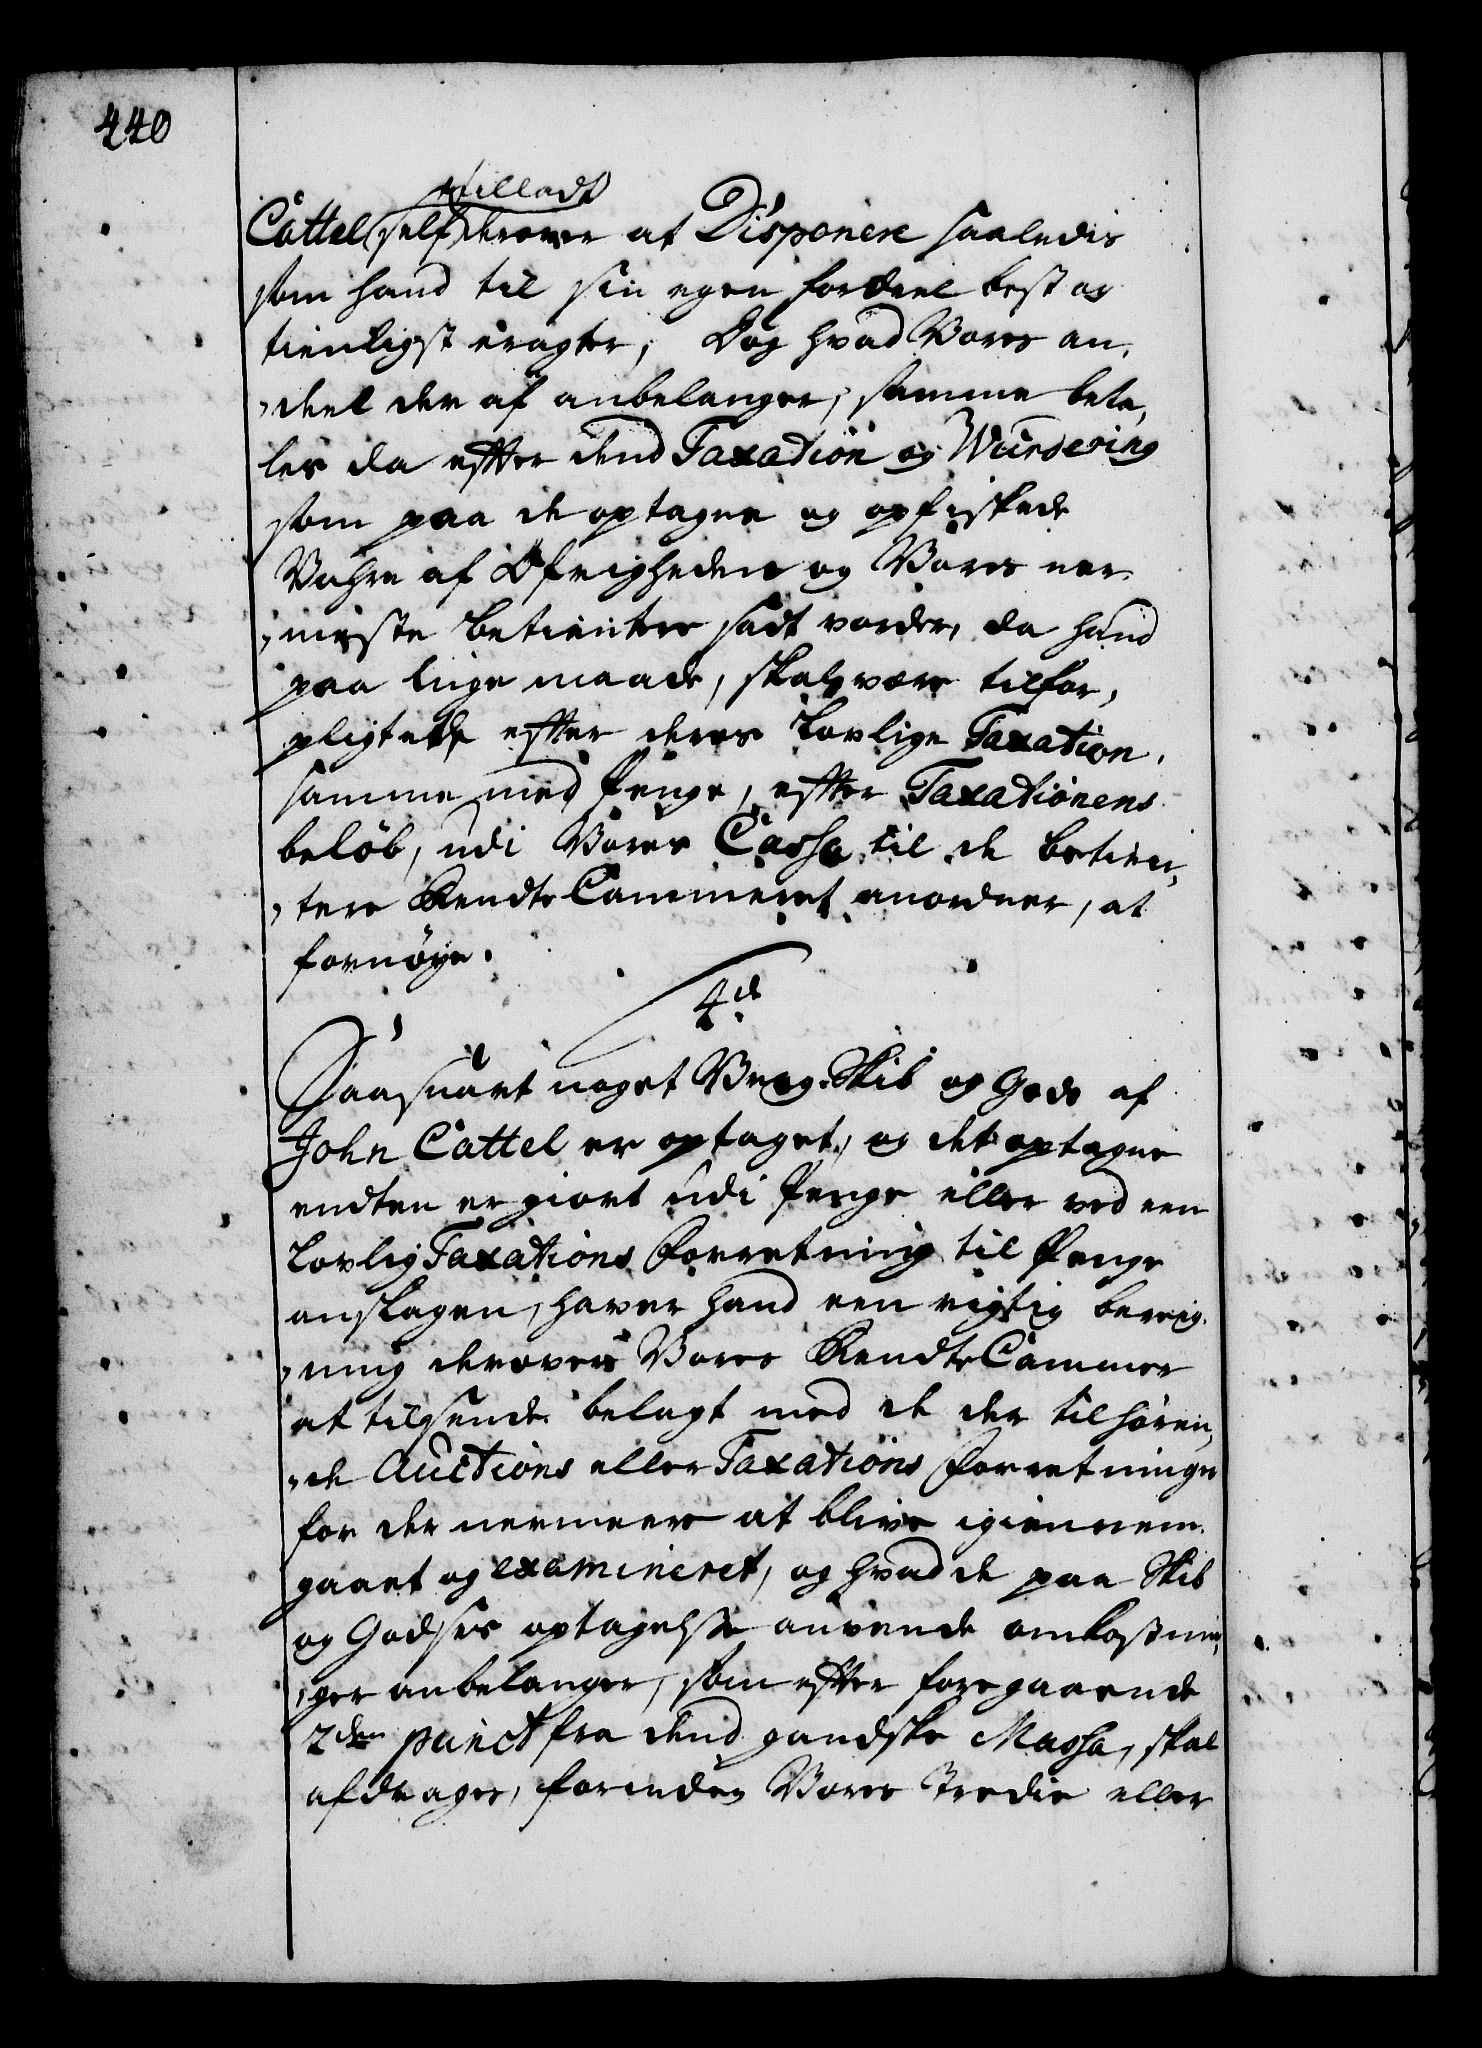 440
tilladt
Cattel self derover at Disponere saaledis
som hand til sin egen fordeel best og
tienligst eragter, Dog hvad Vores an,
,deel der af anbelanger, samme beta,
les da efter dend Taxation og Wurdering
som paa de optagne og opfiskede
Vahre af Øfrigheden og Vores ner,
,meste betientere sadt vorder, da hand
paa lige maade, skal være tilfor,
pligtede efter deres Lovlige Taxation,
samme med Penge, efter Taxationens
beløb, udi Vores Cassa til de betien,
,tere RendteCammeret anordner, at
fornøye.
4de
Saasnart noget Vrag-Skib og Gods af
John Cattel er optaget, og det optagne
endten er giort udi Penge eller ved een
Lovlig Taxations Forretning til Penge
anslagen, haver hand een rigtig bereig,
,ning derover Vores RendteCammer
at tilsende belagt med de der tilhøren,
,de Auctions eller Taxations Forretninger
for der nermeere at blive igiennem
gaaet og examineret, og hvad de paa Skib
og Godses optagelse anvende omkostnin,
,ger anbelanger, som efter foregaaende
2den punct fra dend gandske Massa, skal
afdrages, forinden Vores Tredie eller